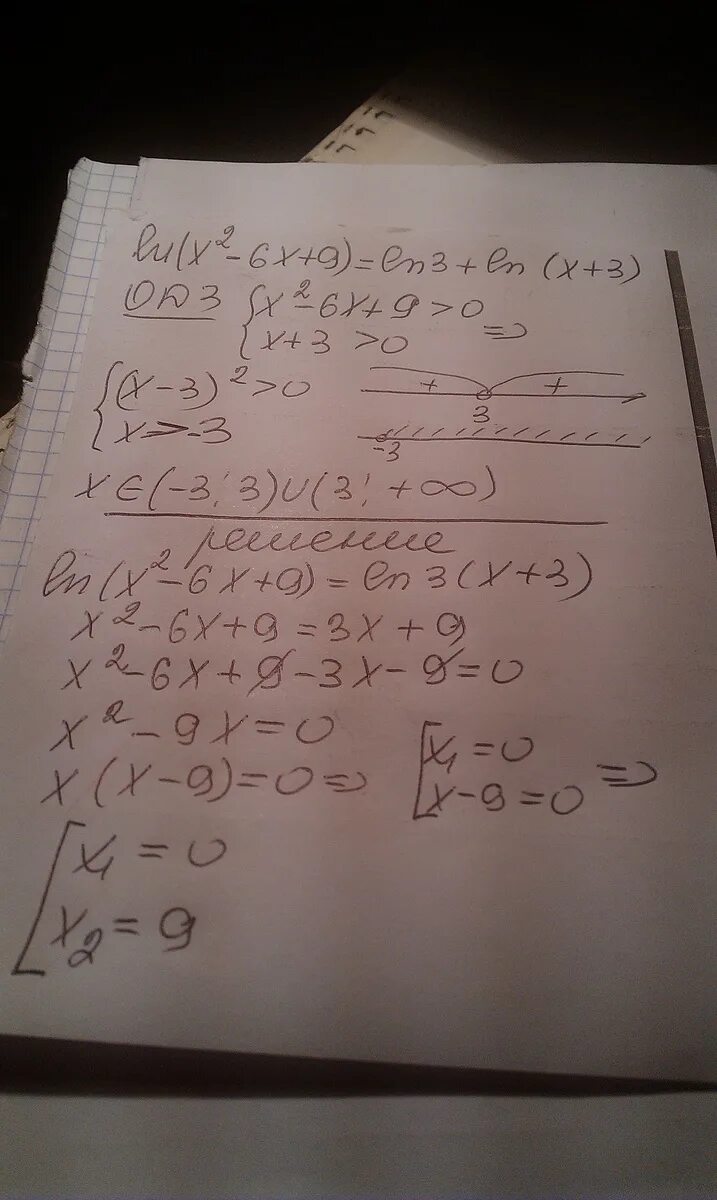 ln(x²-6x+9)=ln3+ln(x+3)
ОДЗ {x²-6x+9>0
{x+3>0 =>
{(x-3)²>0
{x>-3
+ +
3
-3
x∈(-3; 3)∪(3; +∞)
решение
ln(x²-6x+9)=ln3(x+3)
x²-6x+9=3x+9
x²-6x+9-3x-9=0
x²-9x=0
x(x-9)=0=>
[x₁=0
[x-9=0 =>
[x₁=0
[x₂=9